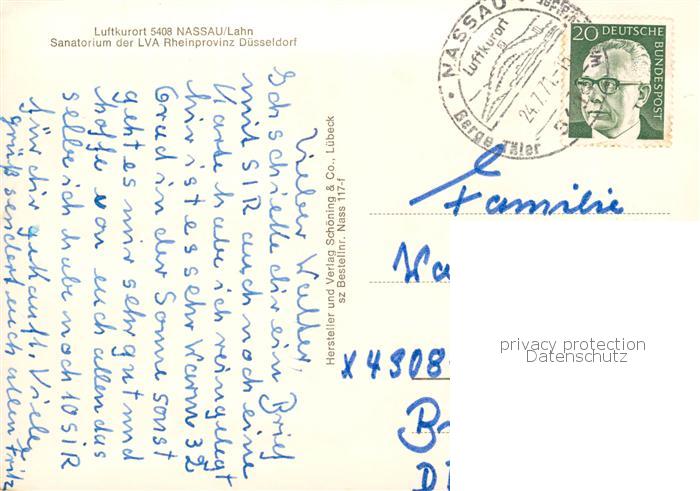 Luftkurort 5408 NASSAU/Lahn
Sanatorium der LVA Rheinprovinz Düsseldorf
NASSAU
Luftkurort
24.7.71
Berge Täler
20 DEUTSCHE
BUNDESPOST
Lieber Walter,
Ich schicke dir ein Brief
mit SIR auch noch eine
Karte habe ich reingelegt
hir ist es sehr Warm 32
Grad in der Sonne sonst
geht es mir sehr gut und
hoffe von euch allen das
selbe ich habe noch 10 SIR
für dir gekauft. Viele
grüß sendert euch allen Fritz
Hersteller und Verlag Schöning & Co., Lübeck
sz Bestellnr. Nass 117-f
Familie
Wa
X 4308
B
D
privacy protection
Datenschutz